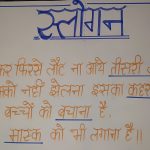 स्लोगन
फिरसे लौट ना आये तीसरी
को नहीं झेलना इसका कहर
बच्चों को बचाना है,
मास्क को भी लगाना है॥